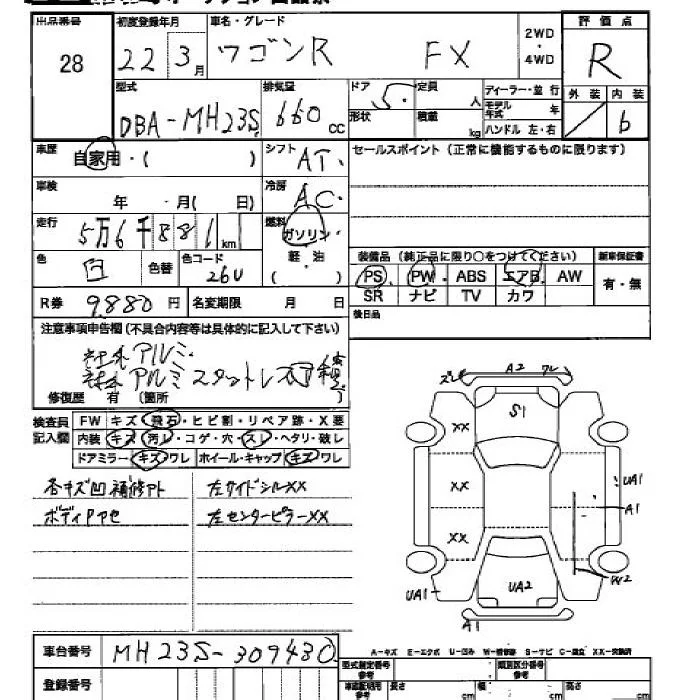 出品番号
28
初度登録年月
22 3月
車名・グレード
ワゴンR FX
2WD
・
4WD
評価点
R
型式
DBA-MH23S
排気量
660 cc
ドア 5.
形状
定員 人
積載 kg
ディーラー・並 行
モデル年式 年
ハンドル 左・右
外装 内装
b
車歴
自家用・( )
シフト AT.
セールスポイント (正常に機能するものに限ります)
車検
年 ・ 月( 日)
冷房 AC.
走行
5万6千881km
燃料
ガソリン・
軽・油
( )
色 白 色替
色コード 26U
装備品(純正品に限り○をつけてください)
新車保証書
PS PW ・ ABS エアB ・ AW
SR ナビ TV カワ
有・無
R券 9.880円
名変期限 月 日
後日品
注意事項申告欄(不具合内容等は具体的に記入して下さい)
社外アルミ.
社外アルミスタットレス
修復歴 有 (箇所 )
検査員記入欄
FW キズ・飛石・ヒビ割・リペア跡・X要
内装 キズ・汚レ・コゲ・穴・スレ・ヘタリ・破レ
ドアミラー キズ ワレ ホイール・キャップ キズ ワレ
各キズ凹補修アト
ボディPアセ
左サイドシルXX
左センターピラーXX
ズレ A2 ワレ
S1
XX
XX
XX
UA1
A1
UA2
UA1
W2
A1
車台番号 MH23S-309430
登録番号
A-キズ E-エクボ U-凹み W-補修跡 S-サビ C-腐食 XX-交換済
型式指定番号
参考
類別区分番号
参考
車庫証明用
参考
長さ cm
幅 cm
高さ cm